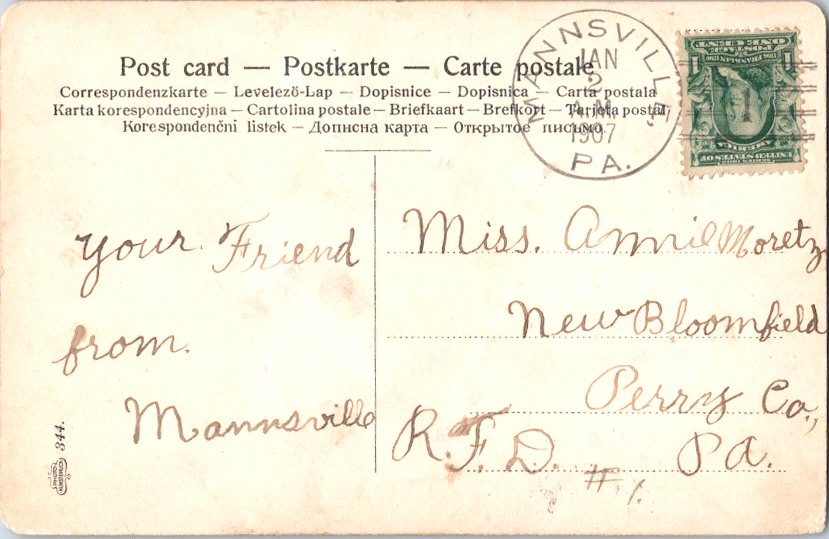 Post card — Postkarte — Carte postale
Correspondenzkarte — Levelező-Lap — Dopisnice — Dopisnica — Carta postala
Karta korespondencyjna — Cartolina postale — Briefkaart — Brefkort — Tarjeta postal
Korespondenční listek — Дописна карта — Открытое письмо
MANNSVILLE
JAN
2
A.M.
1907
PA.
ONE CENT
POSTAGE
1 1
AMERICA
UNITED STATES OF
Your Friend
from.
Mannsville
Miss. Annie Moretz
New Bloomfield
Perry Co.,
R.F.D. Pa.
#1.
344.